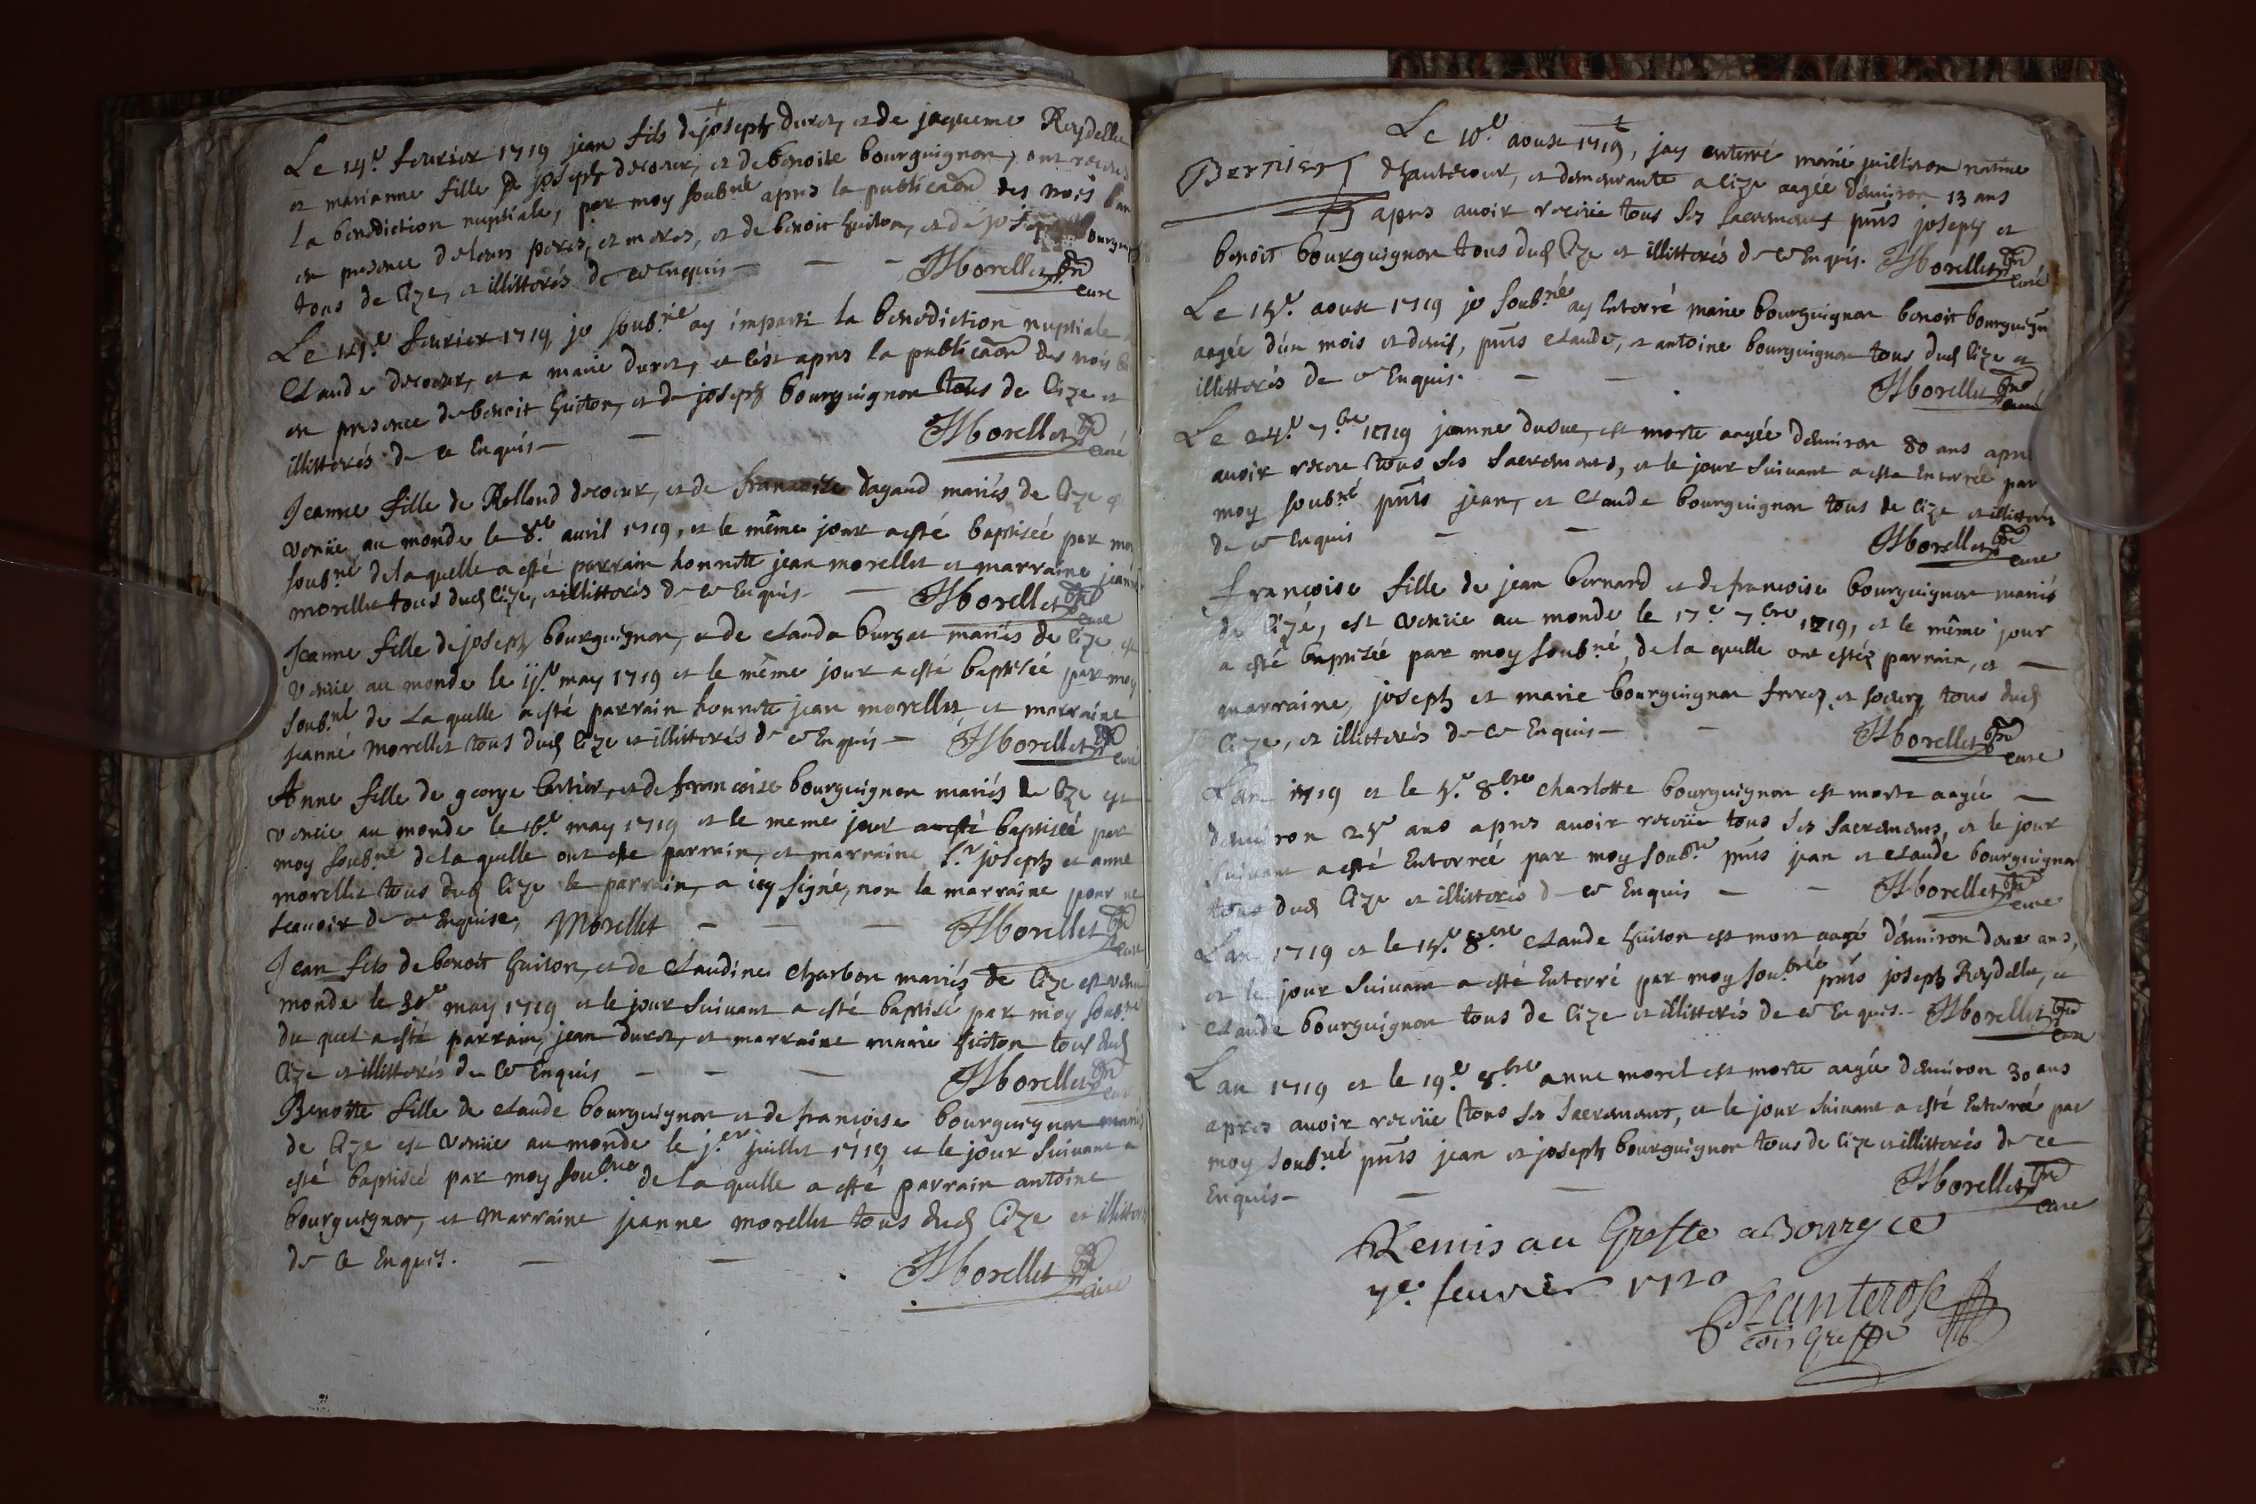 Le 14.e feurier 1719 jean fils de joseph duret, et de jaqueme Reydellet
et marianne fille de joseph decoeur, et de benoite bourguignon, ont receus
la benediction nuptiale, par moy soub.né apres la publicaõn des trois ban
en presence de leurs peres, et meres, et de benoit Guiton, et de joseph bourgui
tous de Cize, et illitterés de ce Enquis - - - JMorellet pre
curé
Le 14.e feurier 1719 je soub.né ay imparti la benediction nuptiale a
Claude decoeur, et a marie duret, et c'est apres la publicaõn des trois b
en presence de benoit Guiton, et de joseph bourguignon tous de Cize et
illitterés de ce Enquis - - JMorellet pre
curé
Jeanne fille de Rolland decoeur, et de francoise dagaud mariés de Cize e
venüe au monde le 8.e avril 1719, et le même jour a esté baptiseé par moy
soub.né de la quelle a esté parrain honnete jean morellet et marraine jeanne
morellet tous dud Cize, et illitterés de ce Enquis - - JMorellet pre
curé
Jeanne fille de joseph bourguignon, et de claude burgat mariés de Cize, est
venüe au monde le ij.e may 1719 et le même jour a esté baptiseé par moy
soub.né de La quelle a esté parrain honnete jean morellet et marraine
jeanne morellet tous dud Cize et illitterés de ce Enquis - JMorellet pre
curé
Anne fille de george bertier, et de francoise bourguignon mariés de Cize est
venüe au monde le 16.e may 1719 et le meme jour a esté baptiseé par
moy soub.né de la quelle ont esté parrain, et marraine s.r joseph et anne
morellet tous dud Cize le parrain, a icy signé, non la marraine pour ne
scauoir de ce Enquise, Morellet - - - JMorellet pre
curé
Jean fils de benoit Guiton, et de Claudine Charbon mariés de Cize est venu
monde le 30.e may 1719 et le jour suivant a esté baptisé par moy soub.né
du quel a esté parrain, jean duret, et marraine marie Guiton tous dud
Cize et illitterés de ce Enquis - - - JMorellet pre
curé
Benoitte fille de claude bourguignon et de francoise bourguignon mariés
de Cize est venüe au monde le j.er juillet 1719 et le jour suivant a
esté baptiseé par moy soub.né de la quelle a esté parrain antoine
bourguignon, et Marraine jeanne morellet tous dud Cize et illitterés
de ce Enquis. - - JMorellet pre
curé
Le 10.e aoust 1719, jay enterré marie juilleron native
Bernier
d'hautecour, et demeurante a Cize aagée d'enuiron 13 ans
apres auoir receüe tous ses sacremens pñts joseph et
benoit bourguignon tous dud Cize et illitterés de ce Enquis. JMorellet pre
curé
Le 14.e aoust 1719 je soub.né ay Enterré marie bourguignon benoit bourguign
aagée d'un mois et demij, pñts claude, et antoine bourguignon tous dud Cize et
illitterés de ce Enquis. - - JMorellet pre
curé
Le 24.e 7.bre 1719 jeanne dusue, est morte aagée d'enuiron 80 ans apres
auoir receu tous ses sacremens, et le jour suivant a esté enterreé par
moy soub.né pñts jean, et claude bourguignon tous de Cize et illitterés
de ce Enquis - - JMorellet pre
curé
Françoise fille de jean bernard et de francoise bourguignon mariés
de Cize, est venüe au monde le 17.e 7.bre 1719, et le même jour
a esté baptiseé par moy soub.né, de la quelle ont estés parrain, et -
marraine, joseph et marie bourguignon freres et soeurs tous dud
Cize, et illitterés de ce Enquis - - JMorellet pre
curé
L'an 1719 et le 4.e 8.bre charlotte bourguignon est morte aagée -
d'enuiron 24 ans apres auoir receüe tous ses sacremens, et le jour
suivant a esté Enterreé par moy soub.né pñts jean et claude bourguignon
tous dud Cize et illitterés de ce Enquis - - JMorellet pre
curé
L'an 1719 et le 14.e 8.bre claude Guiton est mort aagé d'enuiron deux ans,
et le jour suivant a esté Enterré par moy soub.né pñts joseph Reydellet, et
claude bourguignon tous de Cize et illitterés de ce Enquis. - JMorellet pre
curé
L'an 1719 et le 19.e 8.bre anne morel est morte aagée d'enuiron 30 ans
apres auoir receüe tous ses sacremens, et le jour suivant a esté Enterreé par
moy soub.né pñts jean et joseph bourguignon tous de Cize et illitterés de ce
Enquis - - - JMorellet pre
curé
Remis au Greffe a Bourg ce
7.e feurier 1720
Chanterose
com greffe